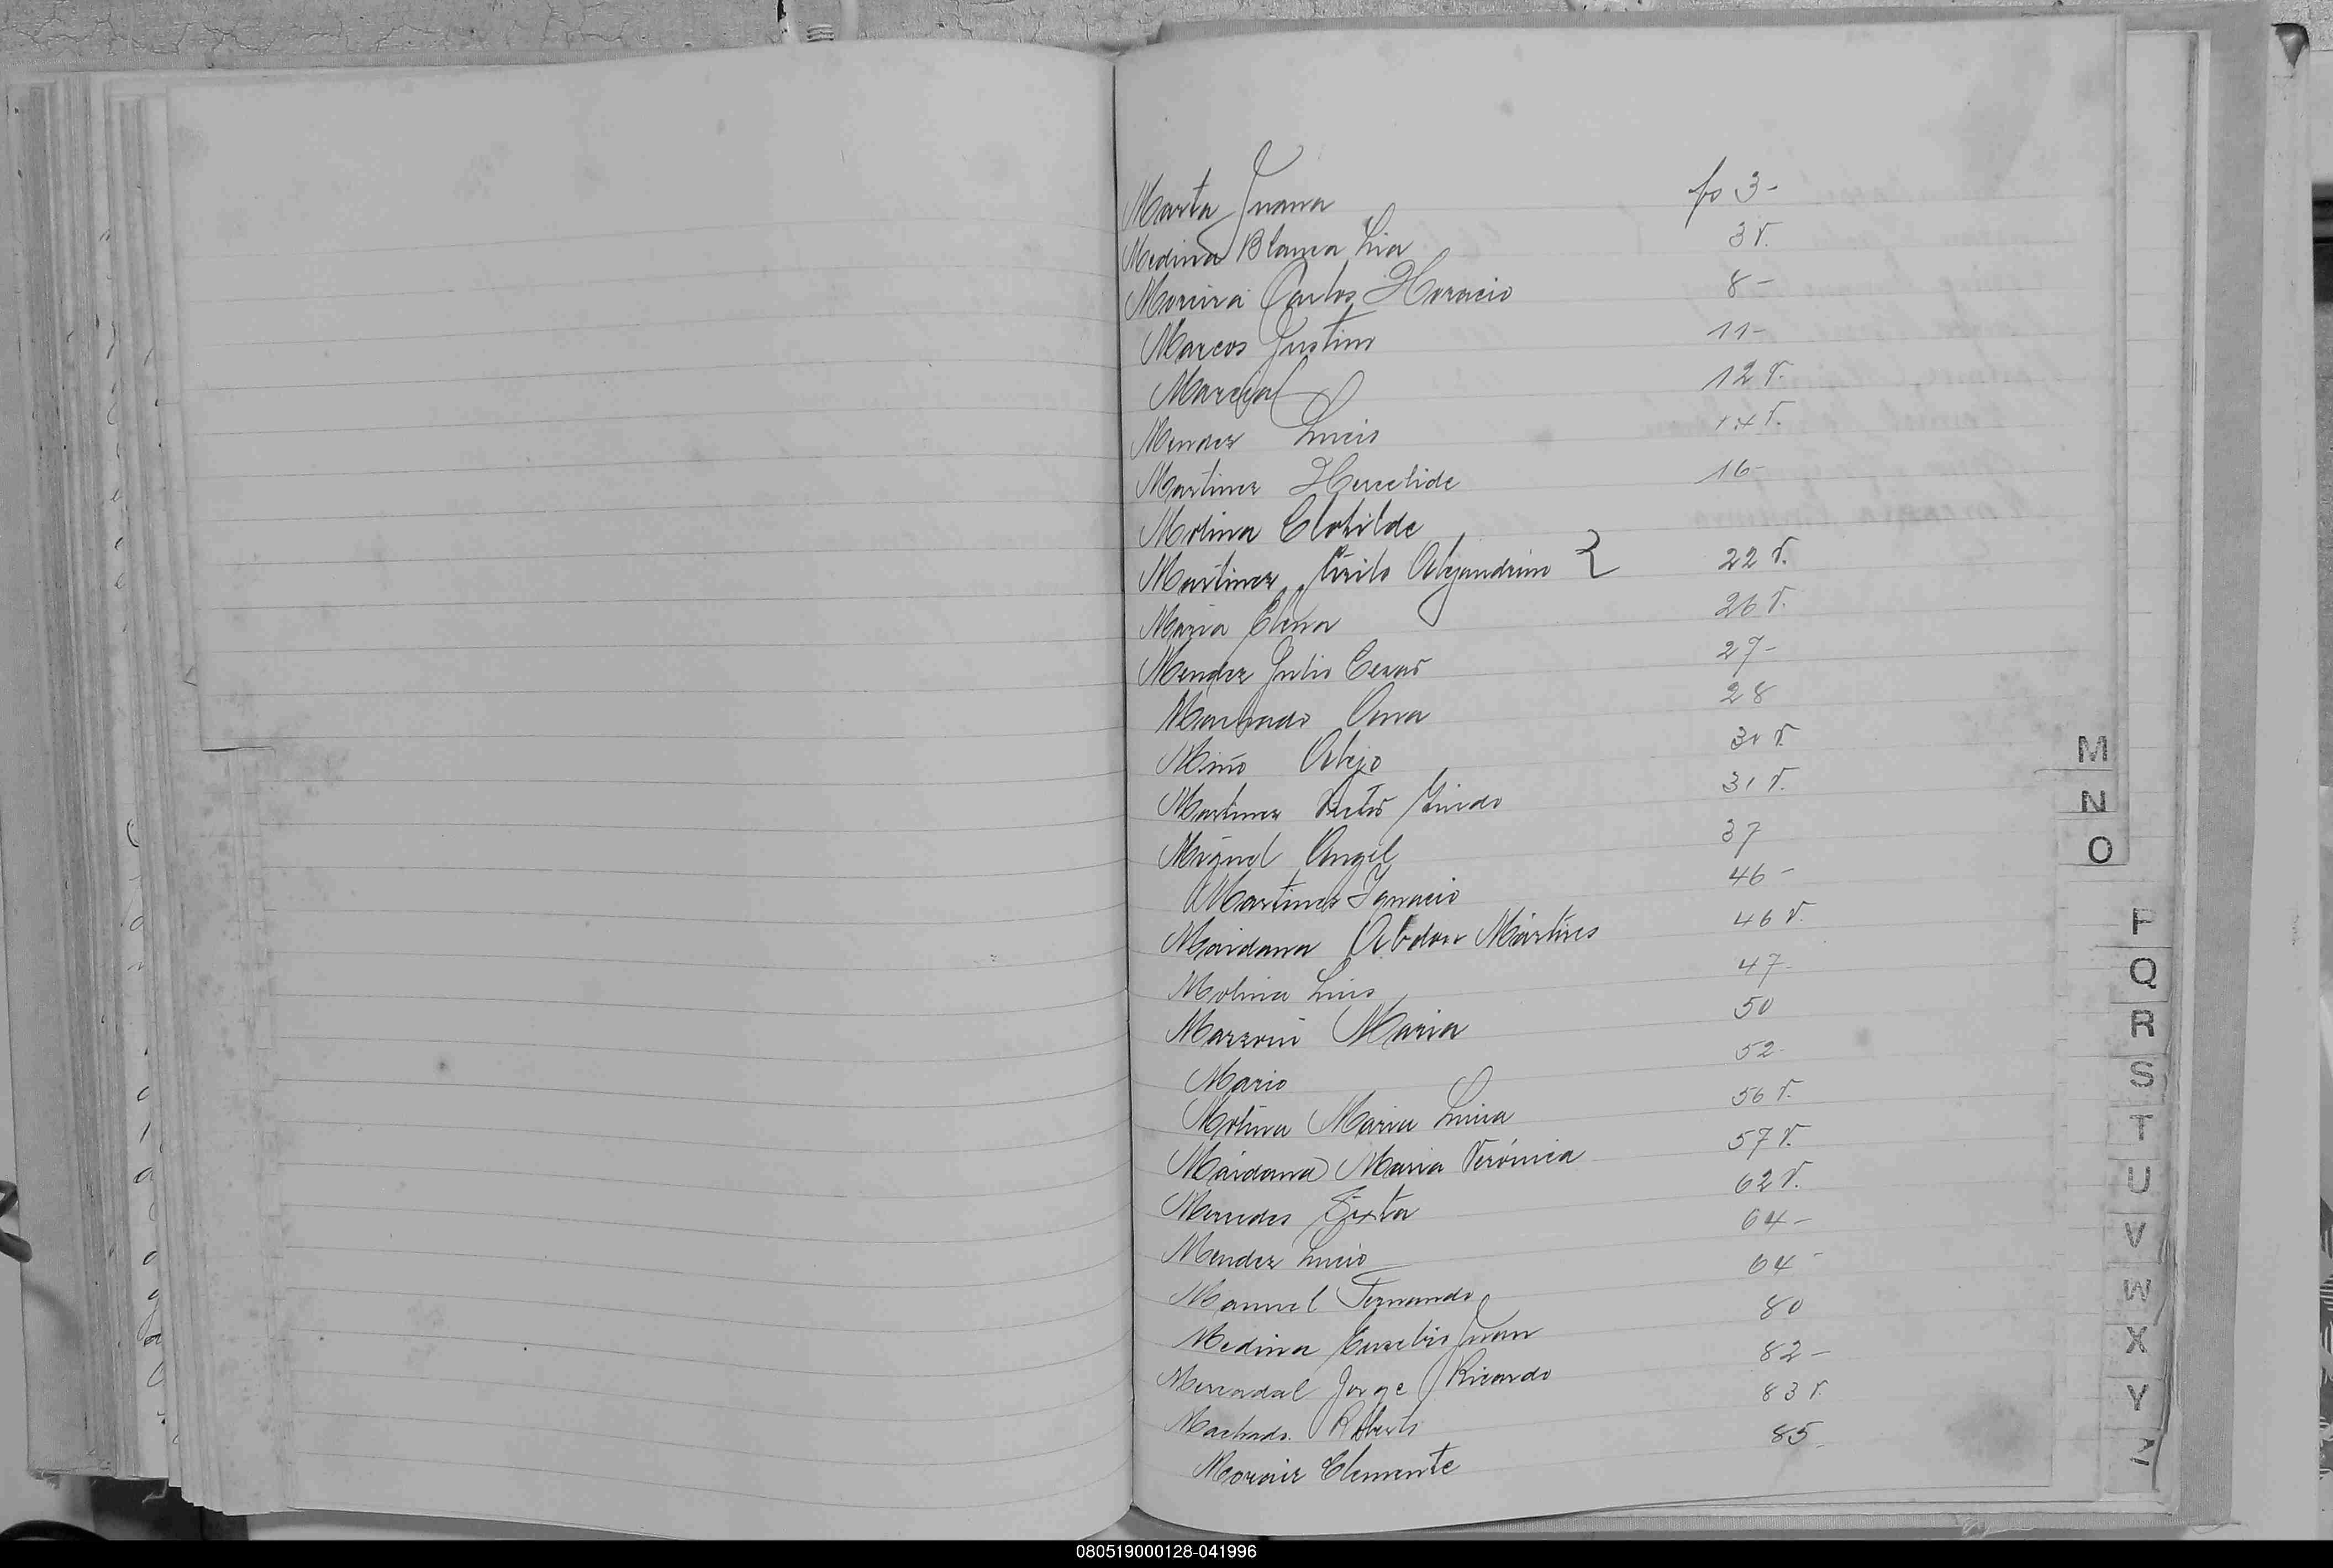 Marta Juana fo 3-
Medina Blanca Lia 3 v.
Moreira Carlos Horacio 8-
Marcos Justino 11-
Marcial 12 v.
Mendez Lucis 14 v.
Martinez Heraclide 16-
Molina Clotilde
Martinez Cirilo Alejandrino } 22 v.
Maria Elena 26 v.
Mendez Julio Cesar 27-
Machado Ana 28
Miño Alejo 30 v.
Martinez Victor 31 v.
Miguel Angel 37
Martinez Ignacio 46-
Maidana Abdon Mártires 46 v.
Molina Luis 47-
Mazzoni Maria 50
Mario 52-
Molina Maria Luisa 56 v.
Maidana Maria Verónica 57 v.
Mercedes Sixta 62 v.
Mendez Lucio 64-
Manuel Fernando 64-
Medina Eusebio Juan 80
Mercadal Jorge Ricardo 82-
Machado. Roberto 83 v.
Clemente 85-
M
N
O
P
Q
R
S
T
U
V
W
X
Y
Z
080519000128-041996